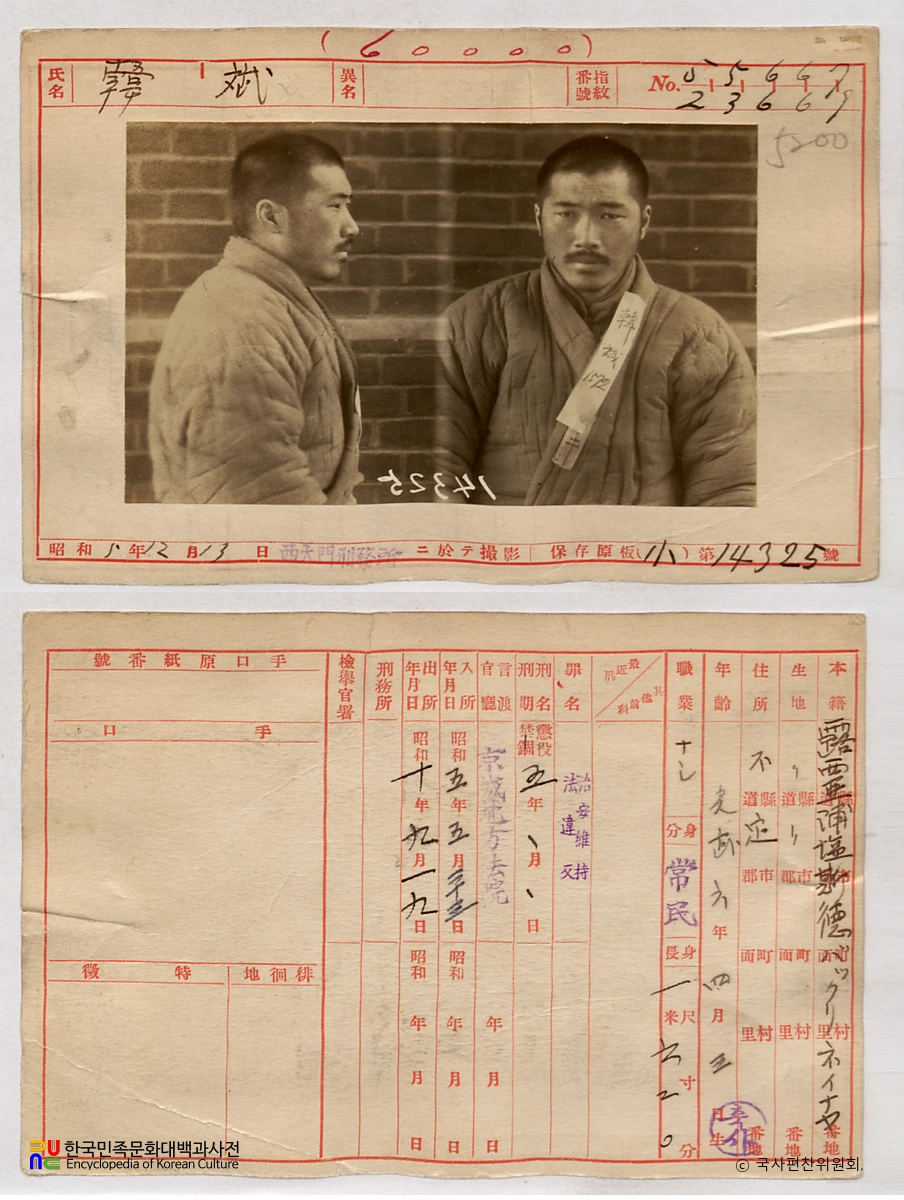 (60000)
氏名 韓 斌 異名 指紋番號 No. 5 5 6 6 7
2 3 6 6 9
5200
韓 斌 1592
14325
昭和 5 年 12 月 13 日 西大門刑務所 ニ於テ撮影 保存原板(小)第 14325 號
本籍 露西亜浦塩斯德
生地 〃
住所 不定
道縣 道縣 道縣
郡市 郡市 郡市
面町 面町 面町
里村 里村 里村
番地 番地 番地
年齡 光武 六 年 四 月 三 日生
職業 ナシ
身分 常民
身長 一 米尺 六 寸 二 分 0
最近 其他前科
罪名 治安維持法違反
刑名 刑期 懲役 禁錮 五 年 、 月 、 日
言渡官廳 京城地方法院
年 月 日
入所年月日 昭和 五 年 五 月 日
昭和 年 月 日
出所年月日 昭和 十 年 九 月 一九 日
昭和 年 月 日
刑務所
檢擧官署
手口原紙番號
手口
徘徊地
特徵
한국민족문화대백과사전
Encyclopedia of Korean Culture
© 국사편찬위원회.